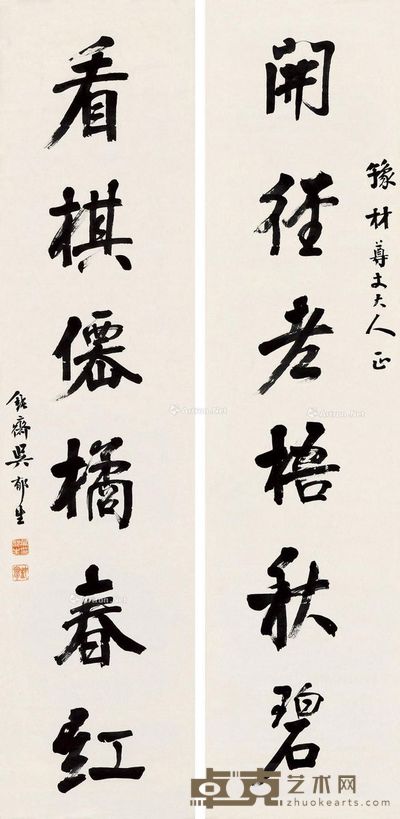 豫材尊丈大人正
開徑老梧秋碧
看棋僊橘春紅
鈍齋吳郁生
Artron.Net
Artron.Net
卓克艺术网
zhuokearts.com